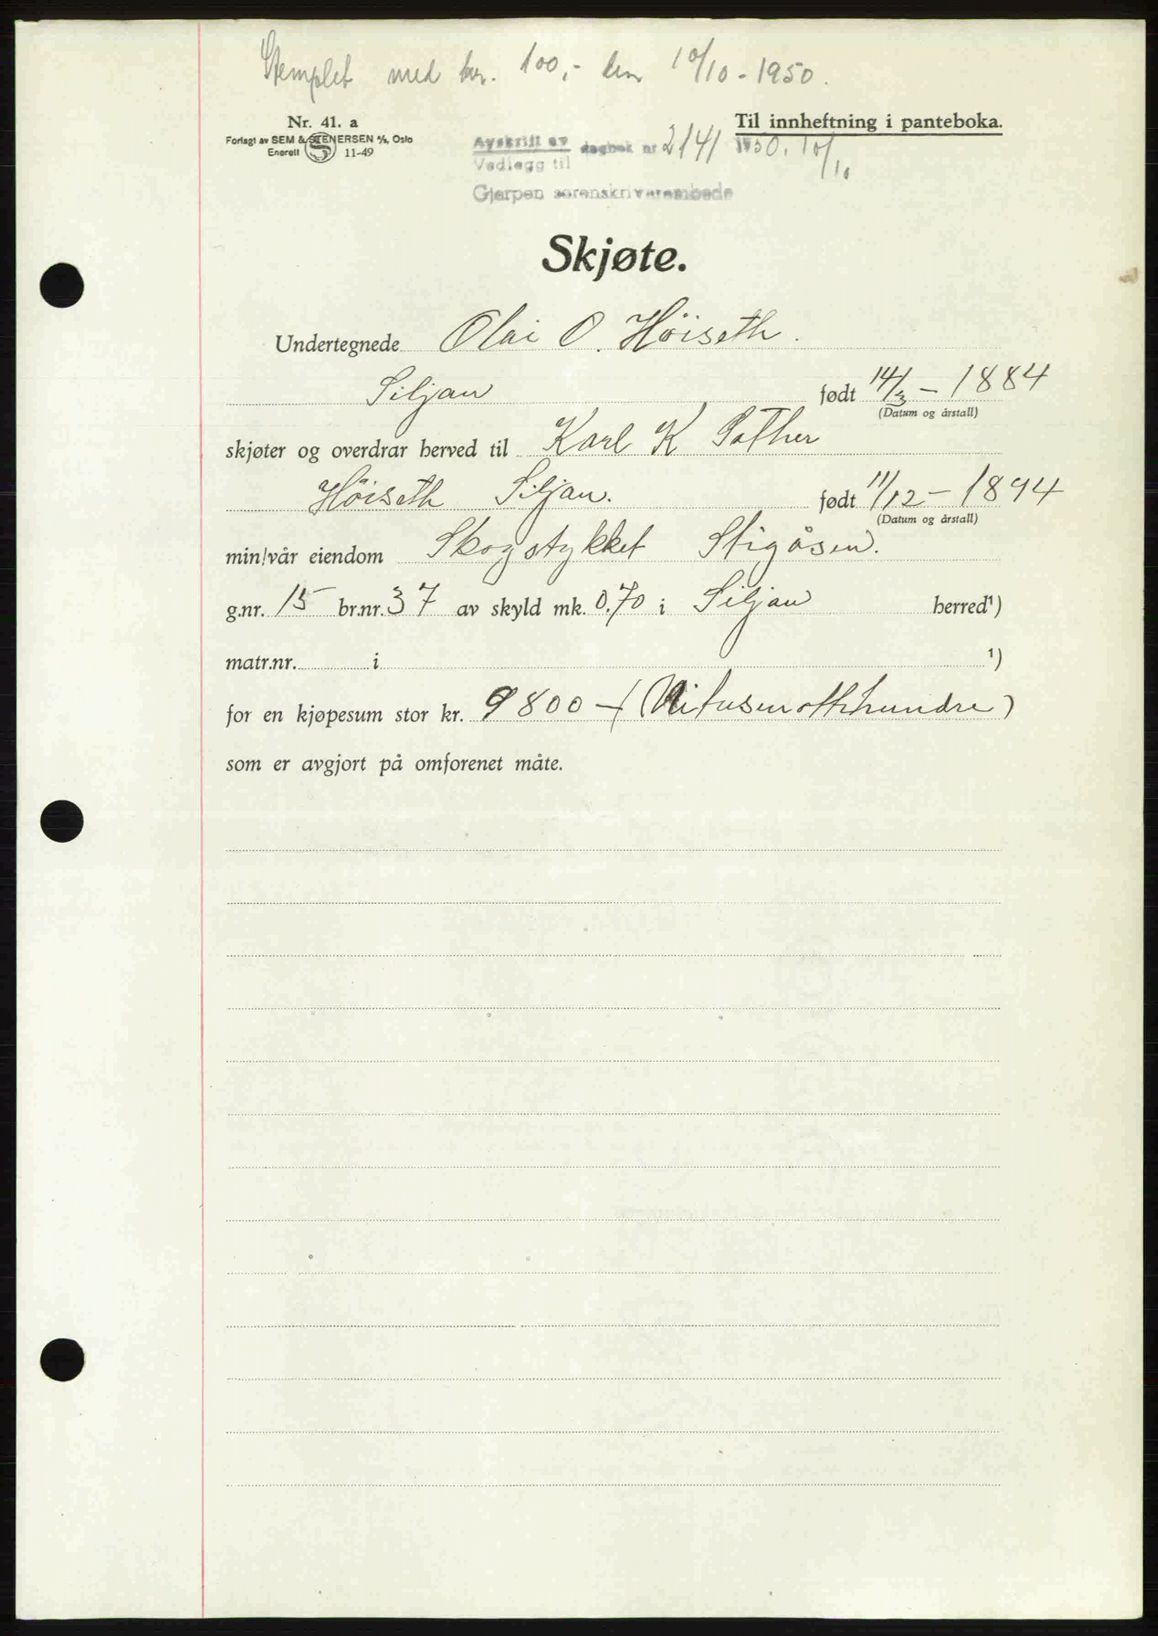 Stemplet med kr. 100,- den 10/10 - 1950.
Nr. 41. a
Forlagt av SEM & STENERSEN A/S, Oslo
Enerett S 11-49
Til innheftning i panteboka.
Avskrift av dagbok nr 2141 1950. 10/10
Vedlegg til
Gjerpen sorenskriverembede
Skjøte.
Undertegnede Olai O. Höiseth.
Siljan født 14/3 - 1884
(Datum og årstall)
skjøter og overdrar herved til Karl K Sather
Höiseth Siljan. født 11/12 - 1894
(Datum og årstall)
min/vår eiendom Skogstykket Stigåsen.
g.nr. 15 br.nr. 37 av skyld mk. 0.70 i Siljan herred¹)
matr.nr. i ¹)
for en kjøpesum stor kr. 9800 - (Nitusenottehundre)
som er avgjort på omforenet måte.